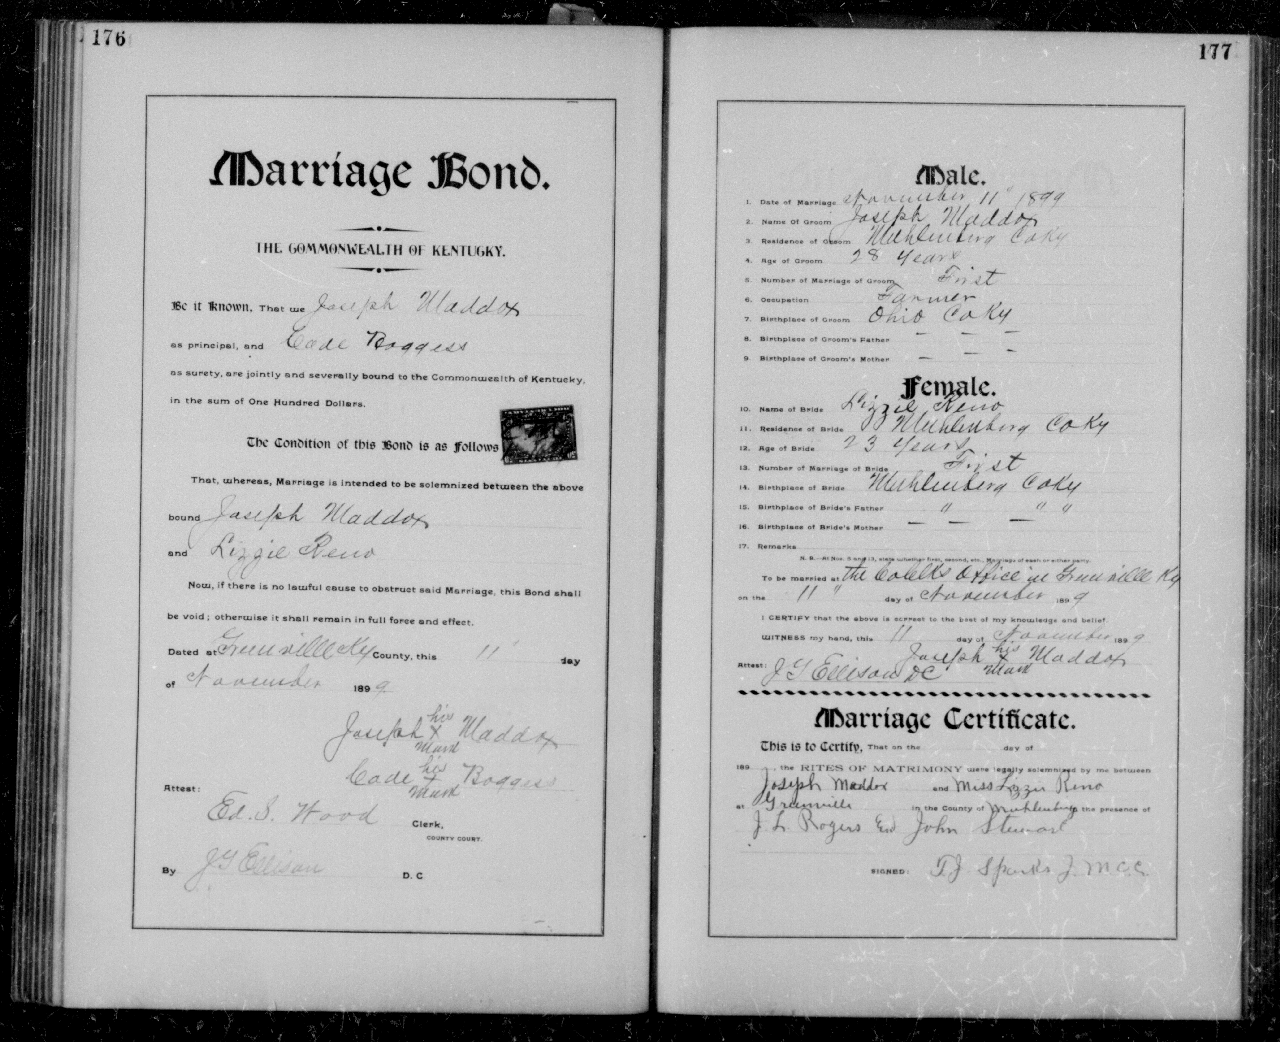 176
Marriage Bond.
THE COMMONWEALTH OF KENTUCKY.
Be it Known, That we Joseph Maddox
as principal, and Cade Boggess
as surety, are jointly and severally bound to the Commonwealth of Kentucky,
in the sum of One Hundred Dollars.
The Condition of this Bond is as Follows
That, whereas, Marriage is intended to be solemnized between the above
bound Joseph Maddox
and Lizzie Reno
Now, if there is no lawful cause to obstruct said Marriage, this Bond shall
be void; otherwise it shall remain in full force and effect.
Dated at Greenville Ky County, this 11 day
of November 1899
his
Joseph x Maddox
Mark
his
Cade x Boggess
Mark
Attest:
Ed. S. Wood Clerk,
COUNTY COURT.
By J G Ellison D. C
177
Male.
1. Date of Marriage November 11" 1899
2. Name Of Groom Joseph Maddox
3. Residence of Groom Muhlenberg Co Ky
4. Age of Groom 28 Years
5. Number of Marriage of Groom First
6. Occupation Farmer
7. Birthplace of Groom Ohio Co Ky
8. Birthplace of Groom's Father — — —
9. Birthplace of Groom's Mother — — —
Female.
10. Name of Bride Lizzie Reno
11. Residence of Bride Muhlenberg Co Ky
12. Age of Bride 23 Years
13. Number of Marriage of Bride First
14. Birthplace of Bride Muhlenberg Co Ky
15. Birthplace of Bride's Father " " "
16. Birthplace of Bride's Mother — — — —
17. Remarks
N. B.—At Nos. 5 and 13, state whether first, second, etc., Marriage of each or either party.
To be married at the Co Clks Office in Greenville Ky
on the 11" day of November 1899
I CERTIFY that the above is correct to the best of my knowledge and belief.
WITNESS my hand, this 11 day of November 1899
his
Joseph x Maddox
Mark
Attest: J G Ellison DC
Marriage Certificate.
This is to Certify, That on the day of
189 , the RITES OF MATRIMONY were legally solemnized by me between
Joseph Maddox and Miss Lizzie Reno
at Greenville in the County of Muhlenberg the presence of
J. L. Rogers End John Stewart
SIGNED: T. J Sparks J. M C. C.